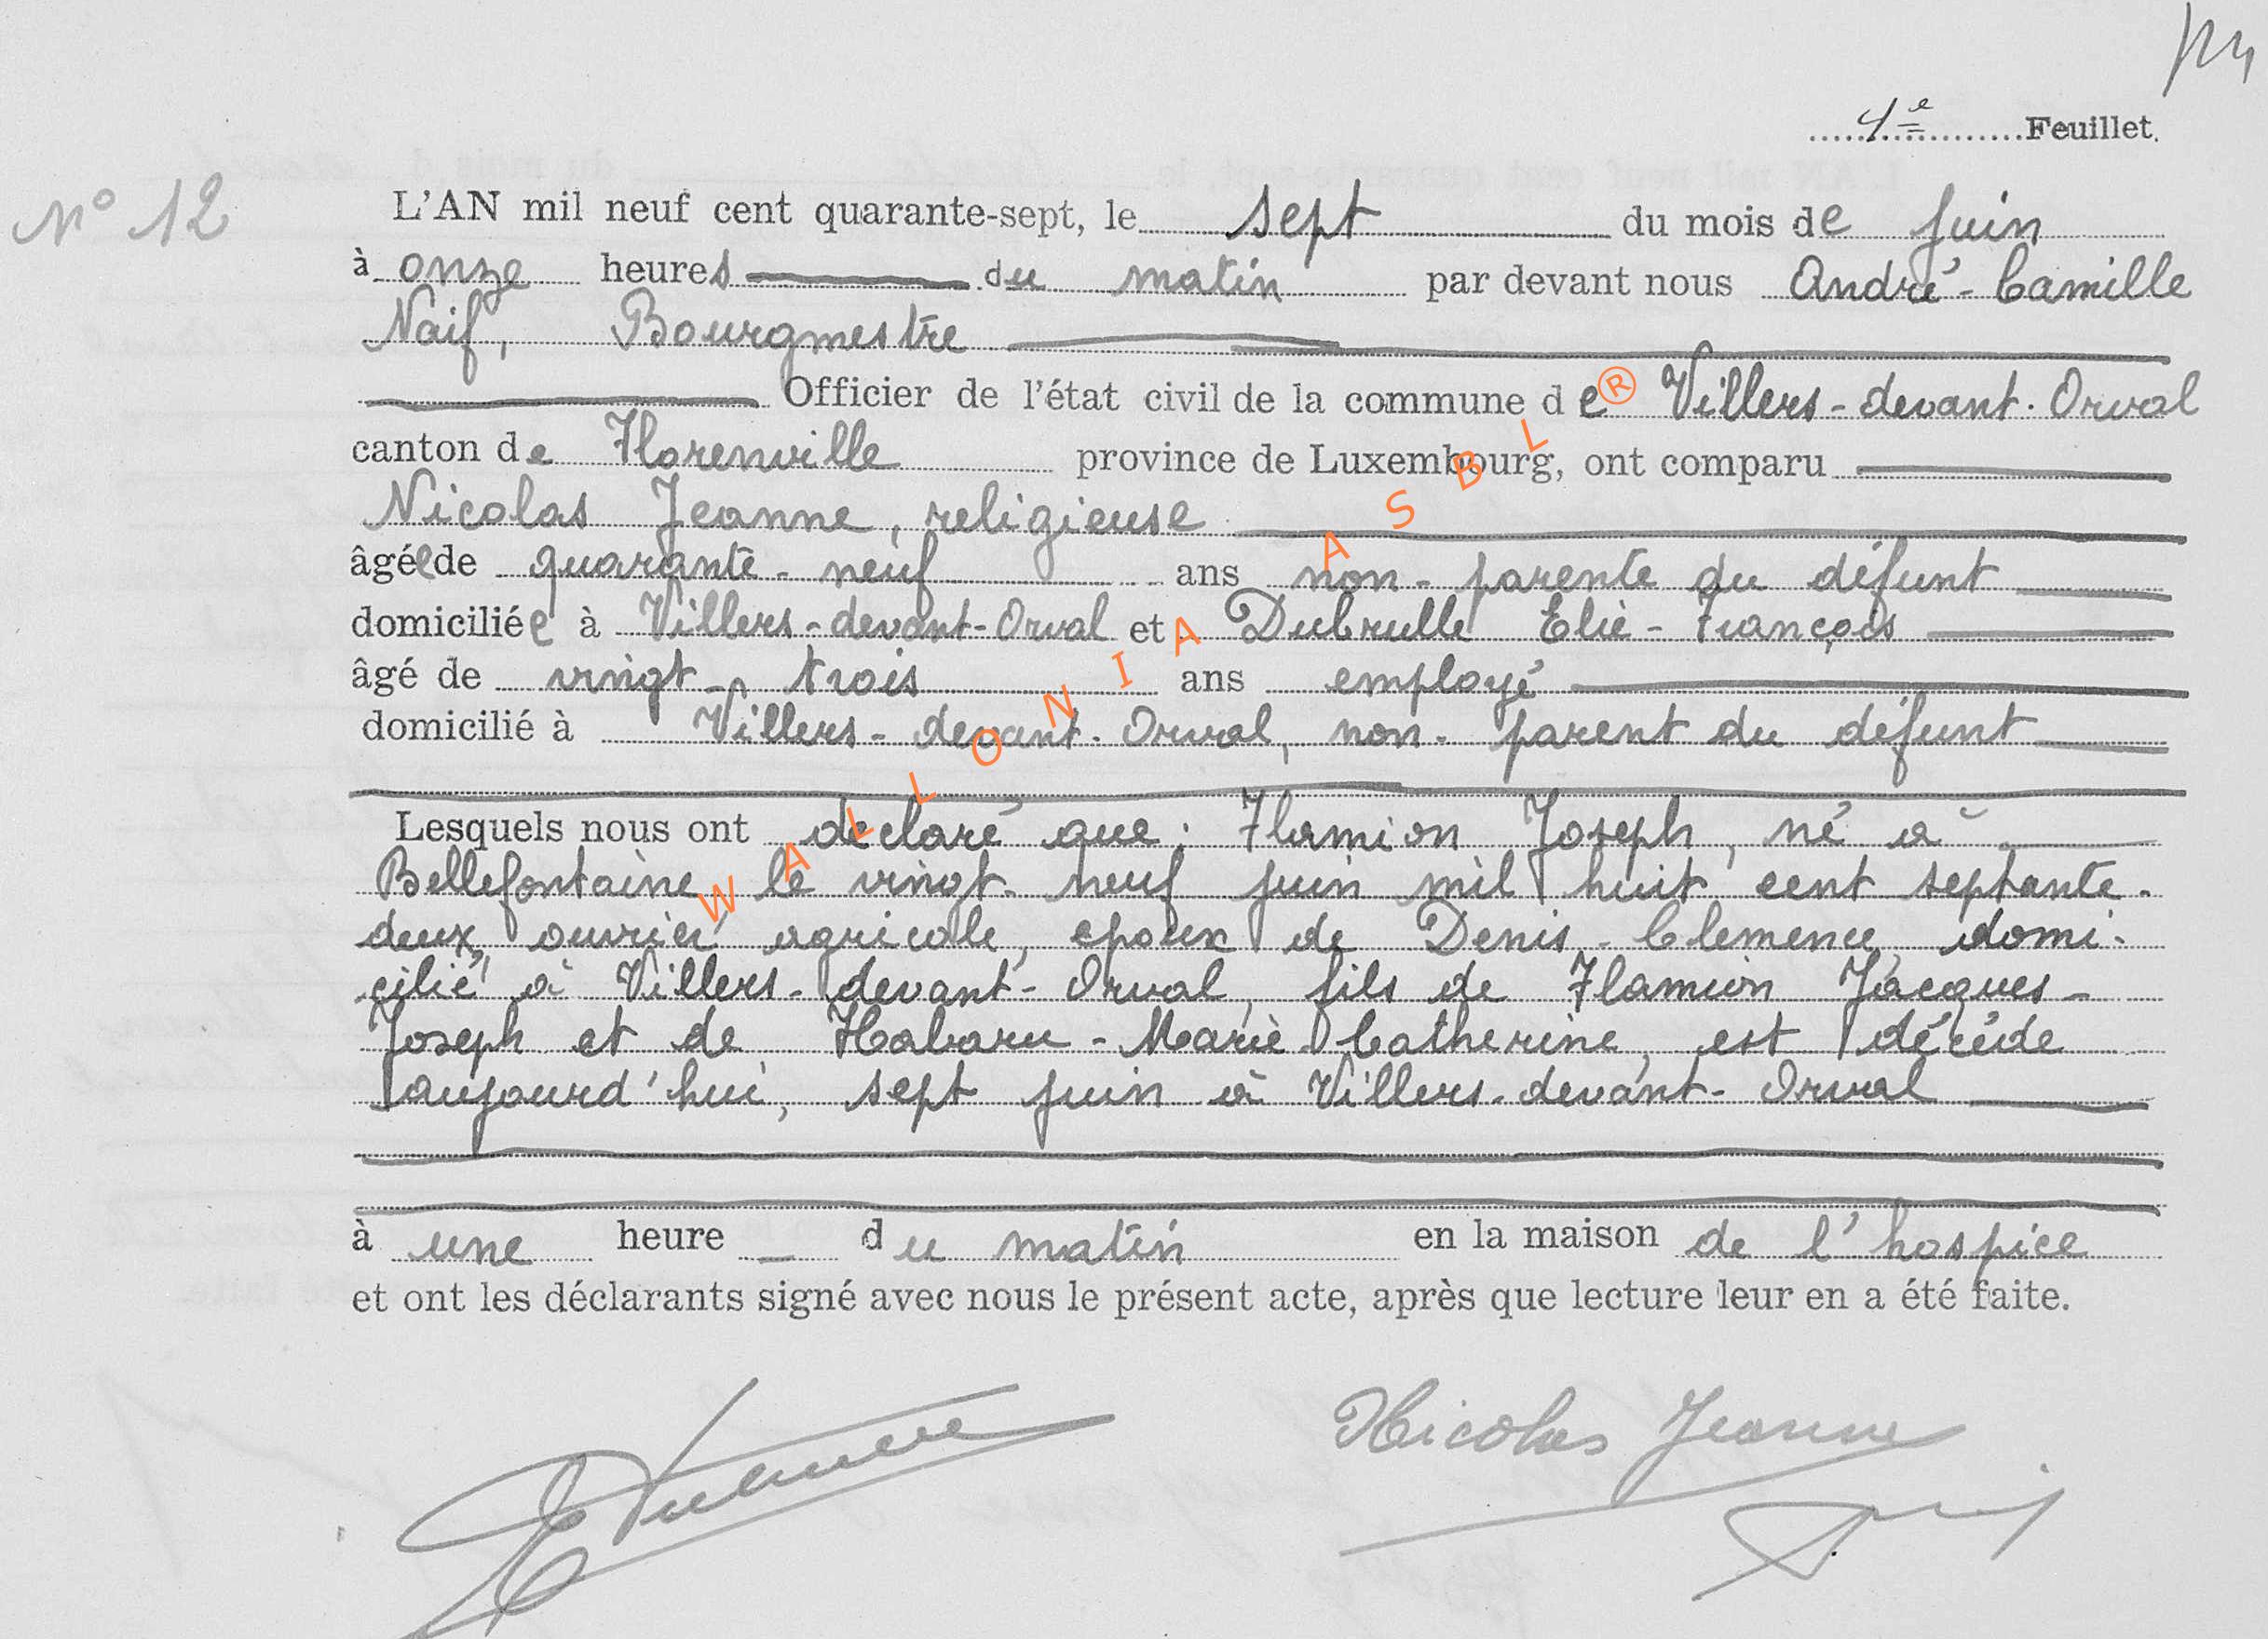 4e Feuillet.
N° 12
L'AN mil neuf cent quarante-sept, le sept du mois de juin
à onze heures du matin par devant nous André-Camille
Naif, Bourgmestre
Officier de l'état civil de la commune de Villers-devant-Orval
canton de Florenville province de Luxembourg, ont comparu
Nicolas Jeanne, religieuse
âgée de quarante-neuf ans non-parente du défunt
domiciliée à Villers-devant-Orval et Dubrulle Elie-François
âgé de vingt-trois ans employé
domicilié à Villers-devant-Orval, non-parent du défunt
Lesquels nous ont declaré que: Flamion Joseph, né à
Bellefontaine le vingt-neuf juin mil huit cent septante-
deux, ouvrier agricole, epoux de Denis-Clemence, domi-
cilié à Villers-devant-Orval, fils de Flamion Jacques-
Joseph et de Habaru-Marie Catherine, est décédé
aujourd'hui, sept juin à Villers-devant-Orval
à une heure du matin en la maison de l'hospice
et ont les déclarants signé avec nous le présent acte, après que lecture leur en a été faite.
Nicolas Jeanne
WALLONIA ASBL ®